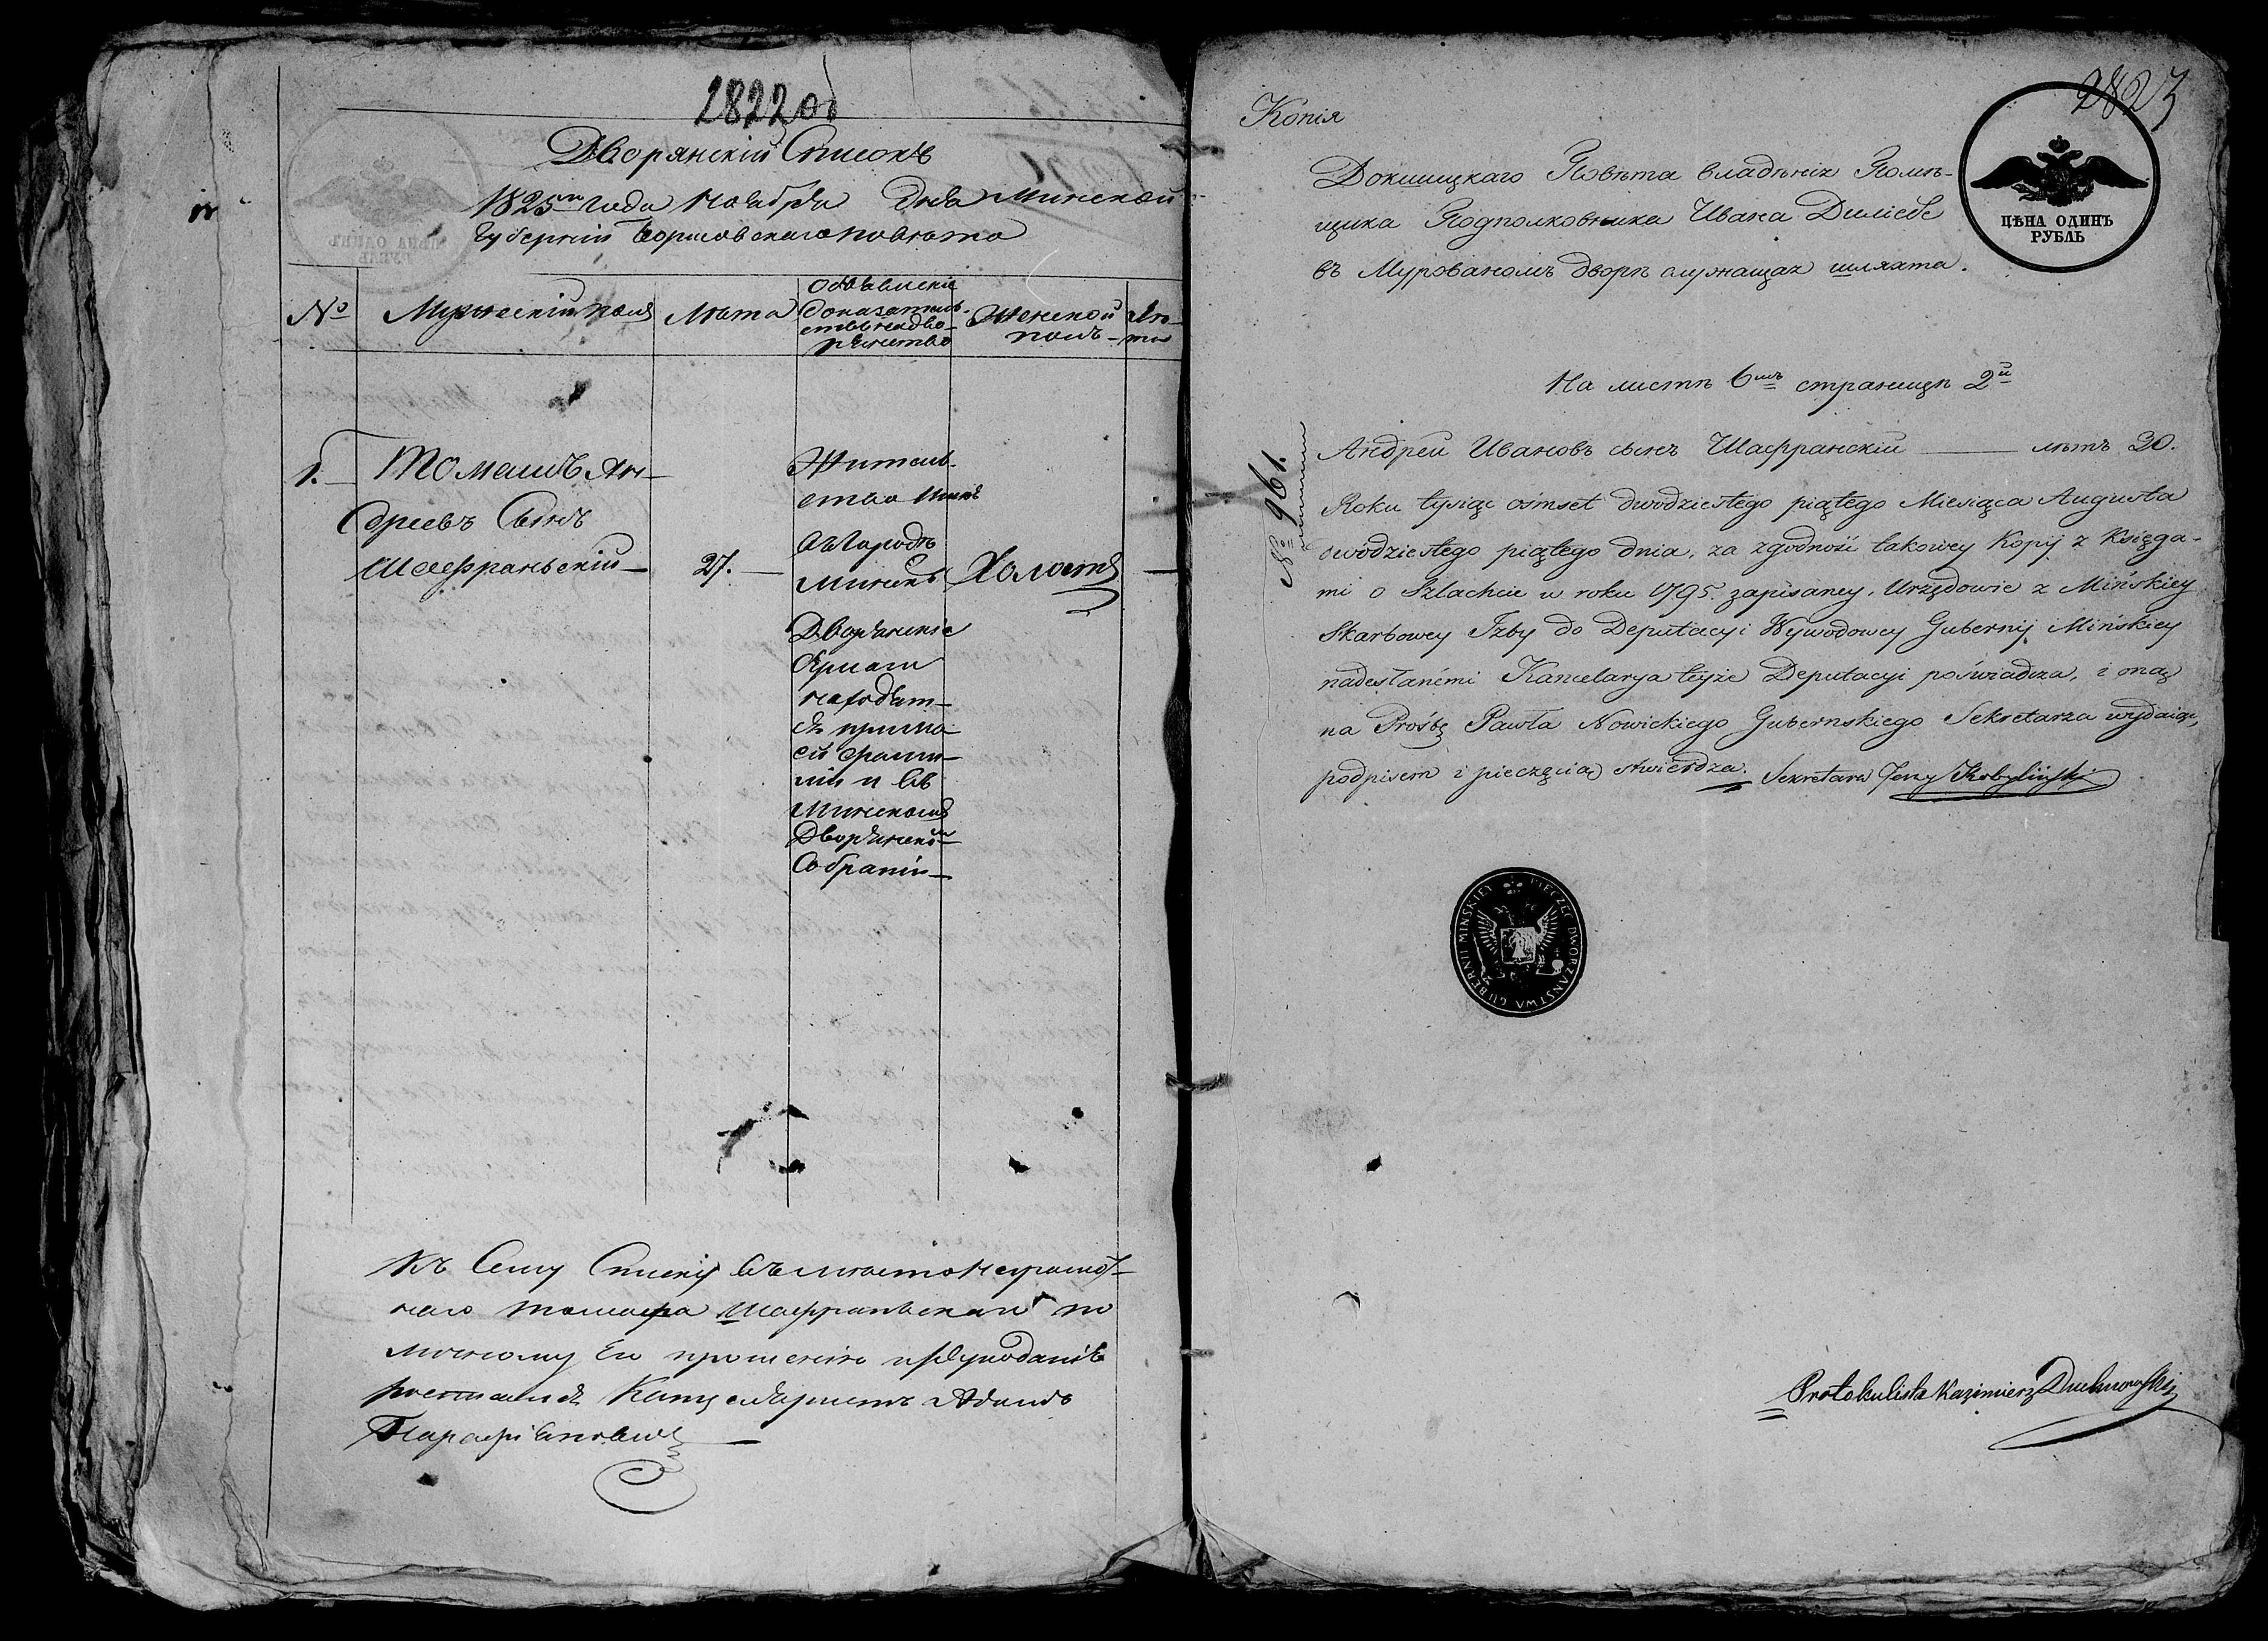 2822 об
Дворянскій Списокъ
1825го года Ноября Дня Минской
Губерніи Борисовскаго повѣта
№
Мужескій полъ
Лѣта
Объявленіе
доказательствъ
на дво-
рянство
Женской
полъ
Лѣ-
та
1.
Томашъ Ан-
дреевъ Сынъ
Шафраньскій
27.
Житель-
ство имѣ
въ городѣ
Минскѣ
Дворянскіе
бумаги
находят-
ся при мо-
ей фами-
ліи и въ
Минскомъ
Дворянском
Собраніи
Холостъ
Къ Сему Списку вмѣсто неграмот-
наго Томаша Шафраньскаго по
личному Его прошенію и рукоданію
росписался Канцеляристъ Адамъ
Парафіановичъ
2823
Копія
ЦѢНА ОДИНЪ
РУБЛЬ
Докшицкаго Повѣта владѣнія Помѣ-
щика Подполковника Ивана
въ Мурованомъ дворѣ служащая шляхта.
На листѣ 6мъ страницѣ 2й
№ 961.
Андрей Ивановъ сынъ Шафранскій лѣтъ 30.
Roku tysiąc ośmset dwodziestego piątego Miesiąca Augusta
dwodziestego piątego dnia, za zgodność takowey Kopij z Księga-
mi o Szlachcie w roku 1795. zapisaney, Urzędowie z Mińskiey
Skarbowey Izby do Deputacyi Wywodowey Gubernij Mińskiey
nadesłanemi Kancelarya teyże Deputacyi poświadcza, i onaą
na Prośbę Pawła Nowickiego Gubernskiego Sekretarza wydaiąc,
podpisem i pieczęcią stwierdza. Sekretarz Jerzy Kobyliński
PIECZĘĆ DWORZANSTWA GUBERNII MINSKIEY
Protokulista Kazimierz Duchnowski